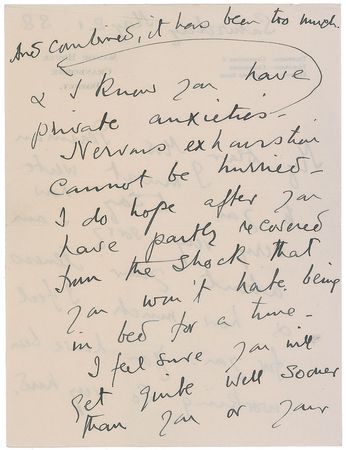 And combined, it has been too much.
& I know you have
private anxieties –
Nervous exhaustion
cannot be hurried –
I do hope after you
have partly recovered
from the shock that
you won't hate being
in bed for a time –
I feel sure you will
get quite well sooner
than you or your